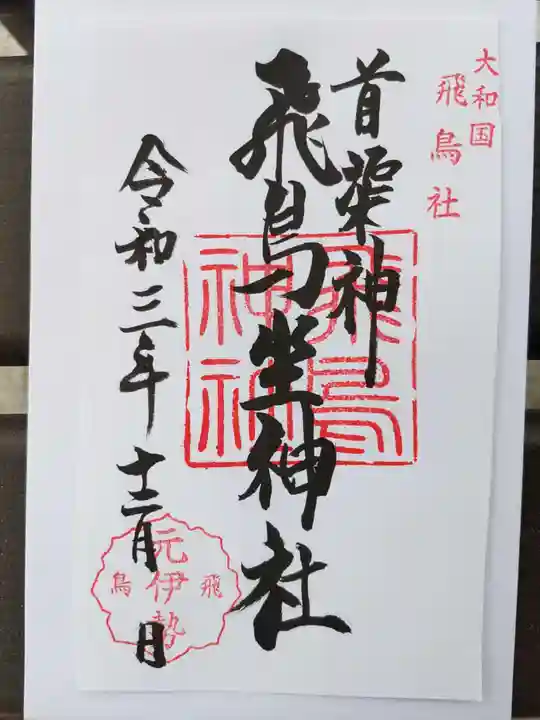 大和国
飛鳥社
首渠神
飛鳥坐神社
令和三年十二月 日
飛鳥
元伊勢